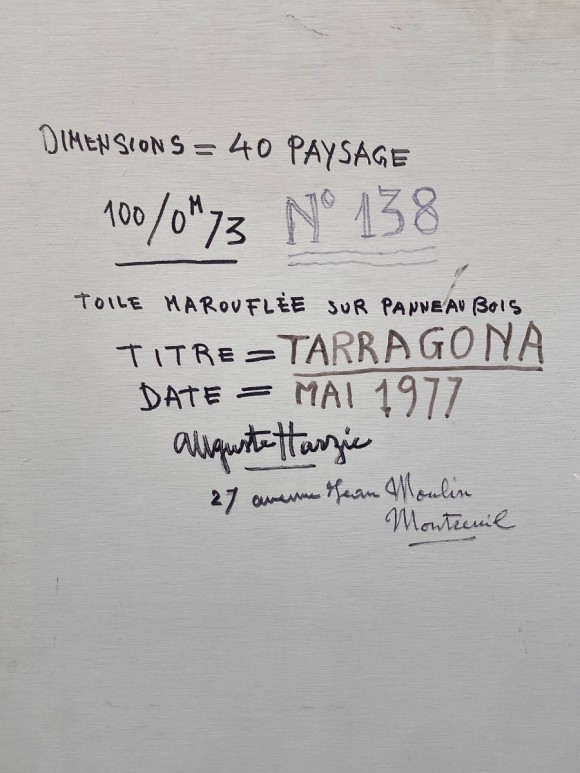 DIMENSIONS = 40 PAYSAGE
100/0M73 N° 138
TOILE MAROUFLÉE SUR PANNEAU BOIS
TITRE = TARRAGONA
DATE = MAI 1977
Auguste Harzic
27 avenue Jean Moulin
Montreuil